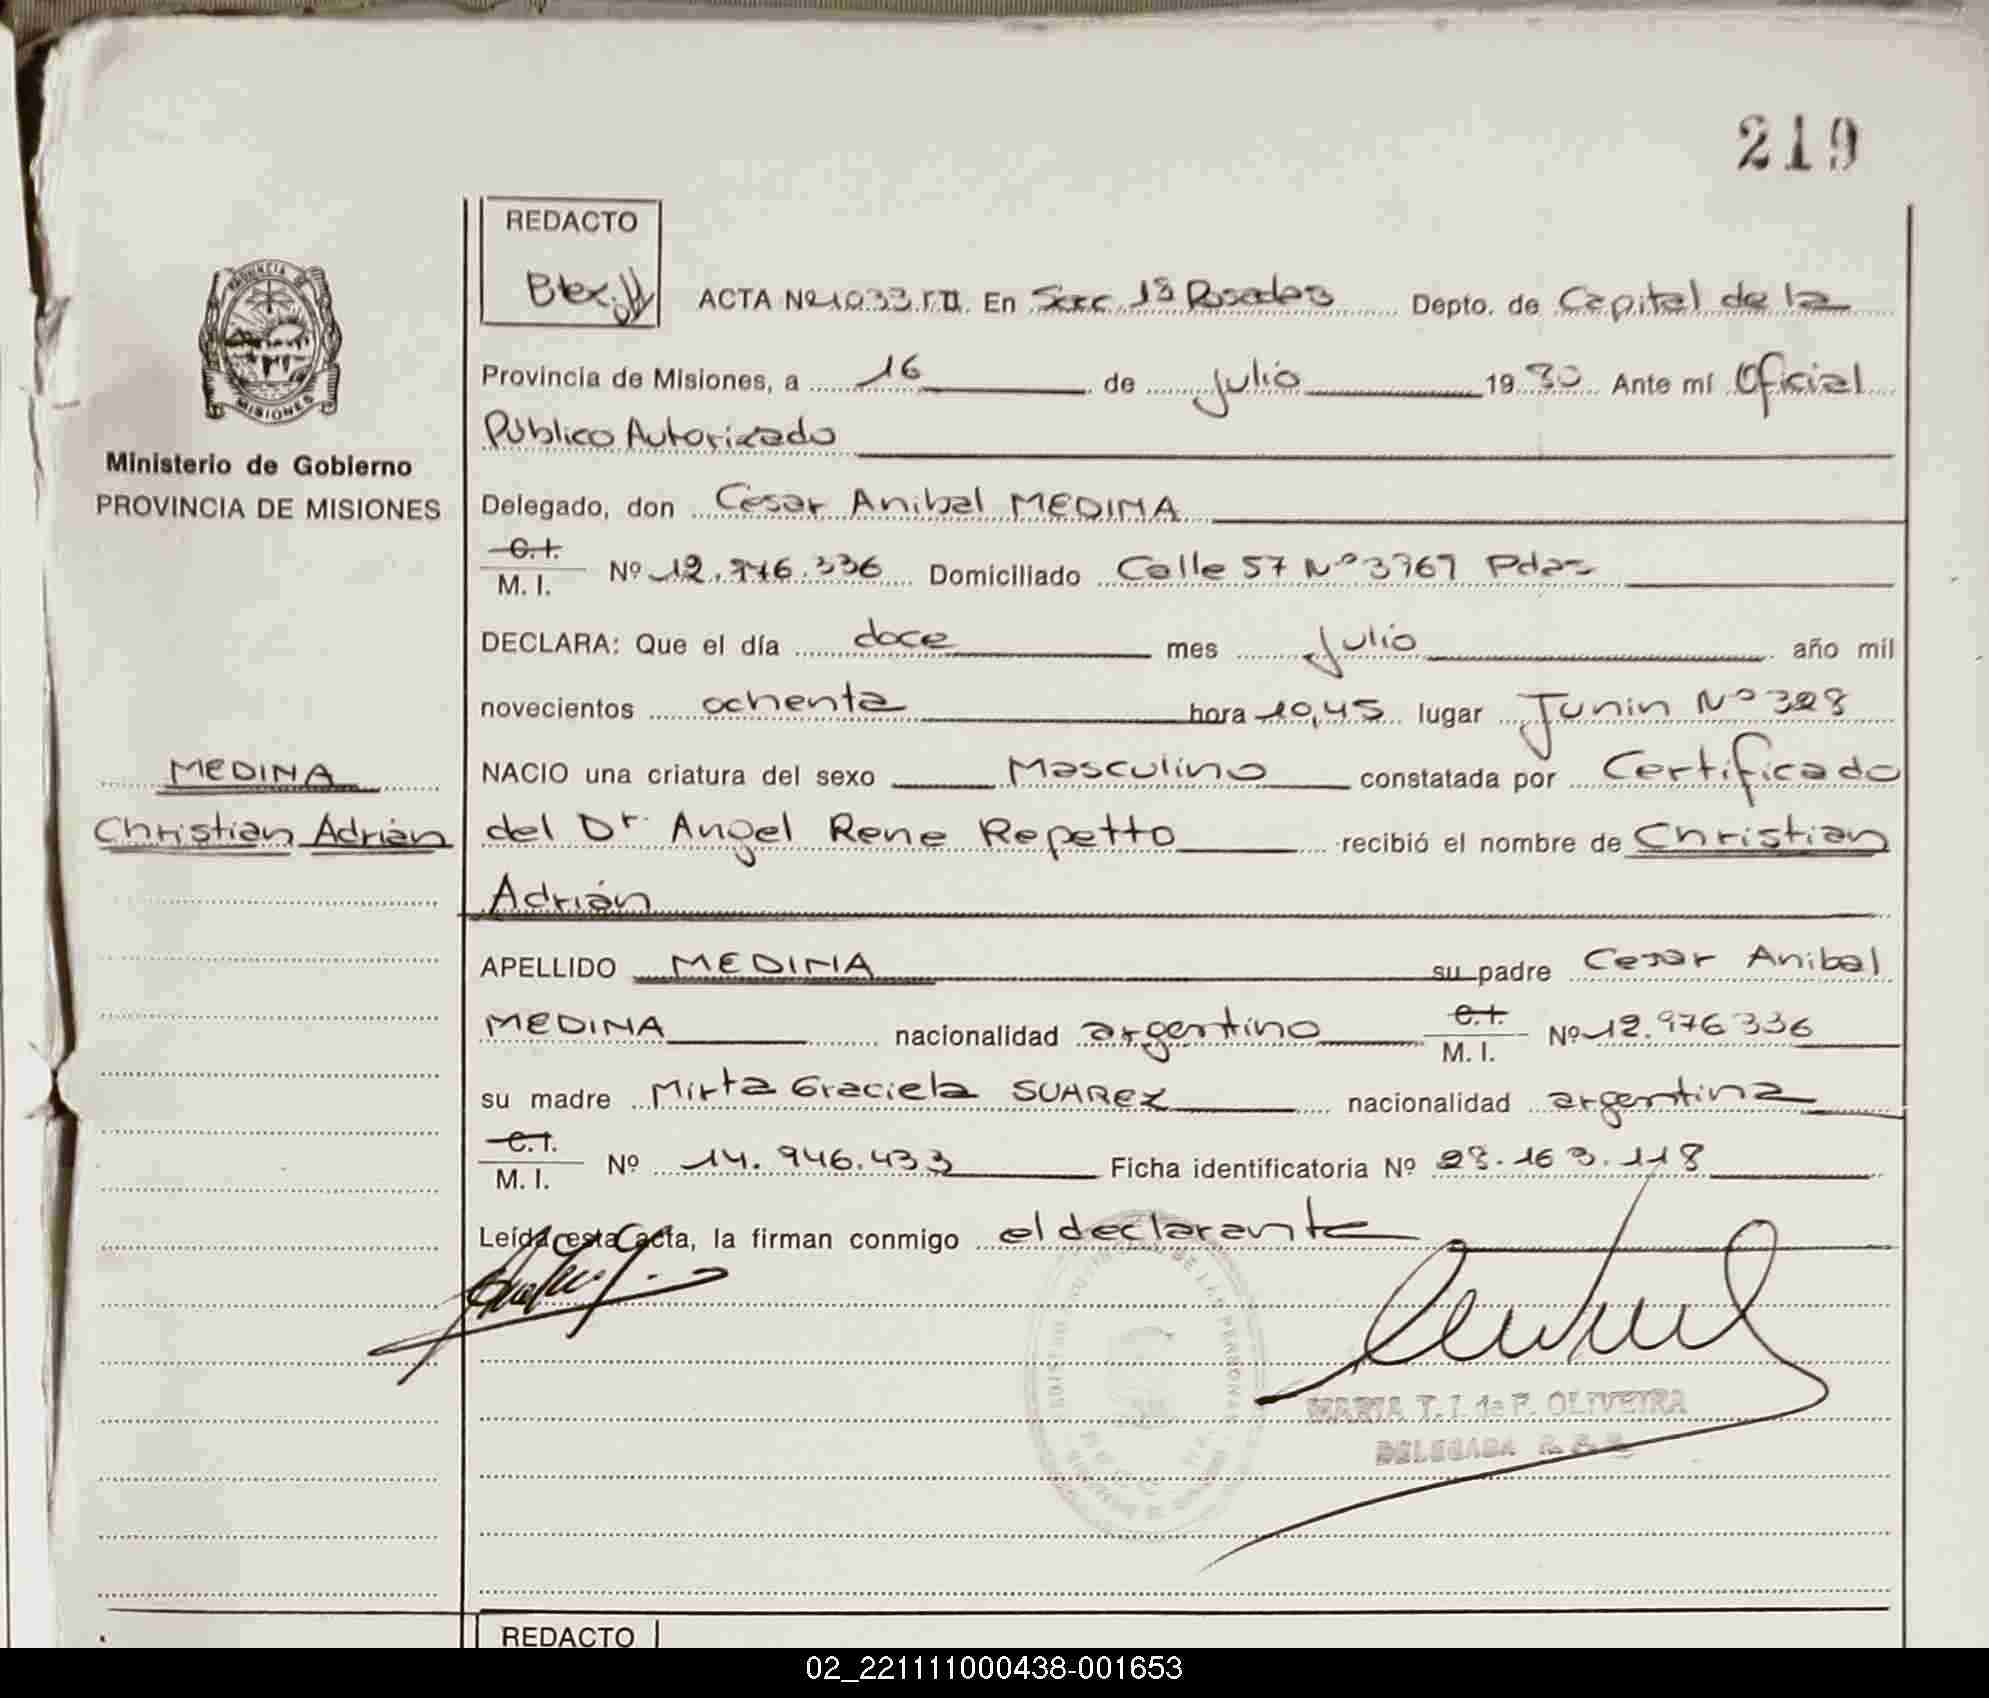 219
REDACTO
ACTA Nº 1033 En Secc. 1ª Posadas Depto. de Capital de la
PROVINCIA DE MISIONES
Provincia de Misiones, a 16 de Julio 1980 Ante mí Oficial
Público Autorizado
Ministerio de Gobierno
PROVINCIA DE MISIONES
Delegado, don Cesar Anibal MEDINA
C.I. M. I. Nº 12.976.336 Domiciliado Calle 57 Nº 3767 Pdas
DECLARA: Que el día doce mes Julio año mil
novecientos ochenta hora 10,45 lugar Junin Nº 328
MEDINA
NACIO una criatura del sexo Masculino constatada por Certificado
Christian Adrián
del Dr. Angel Rene Repetto recibió el nombre de Christian
Adrián
APELLIDO MEDINA su padre Cesar Anibal
MEDINA nacionalidad argentino C.I. M. I. Nº 12.976336
su madre Mirta Graciela SUAREZ nacionalidad argentina
C.I. M. I. Nº 14.946.433 Ficha identificatoria Nº 28.163.118
Leída esta acta, la firman conmigo el declarante
MARIA T. I. de F. OLIVEIRA
DELEGADA
REDACTO
02_221111000438-001653